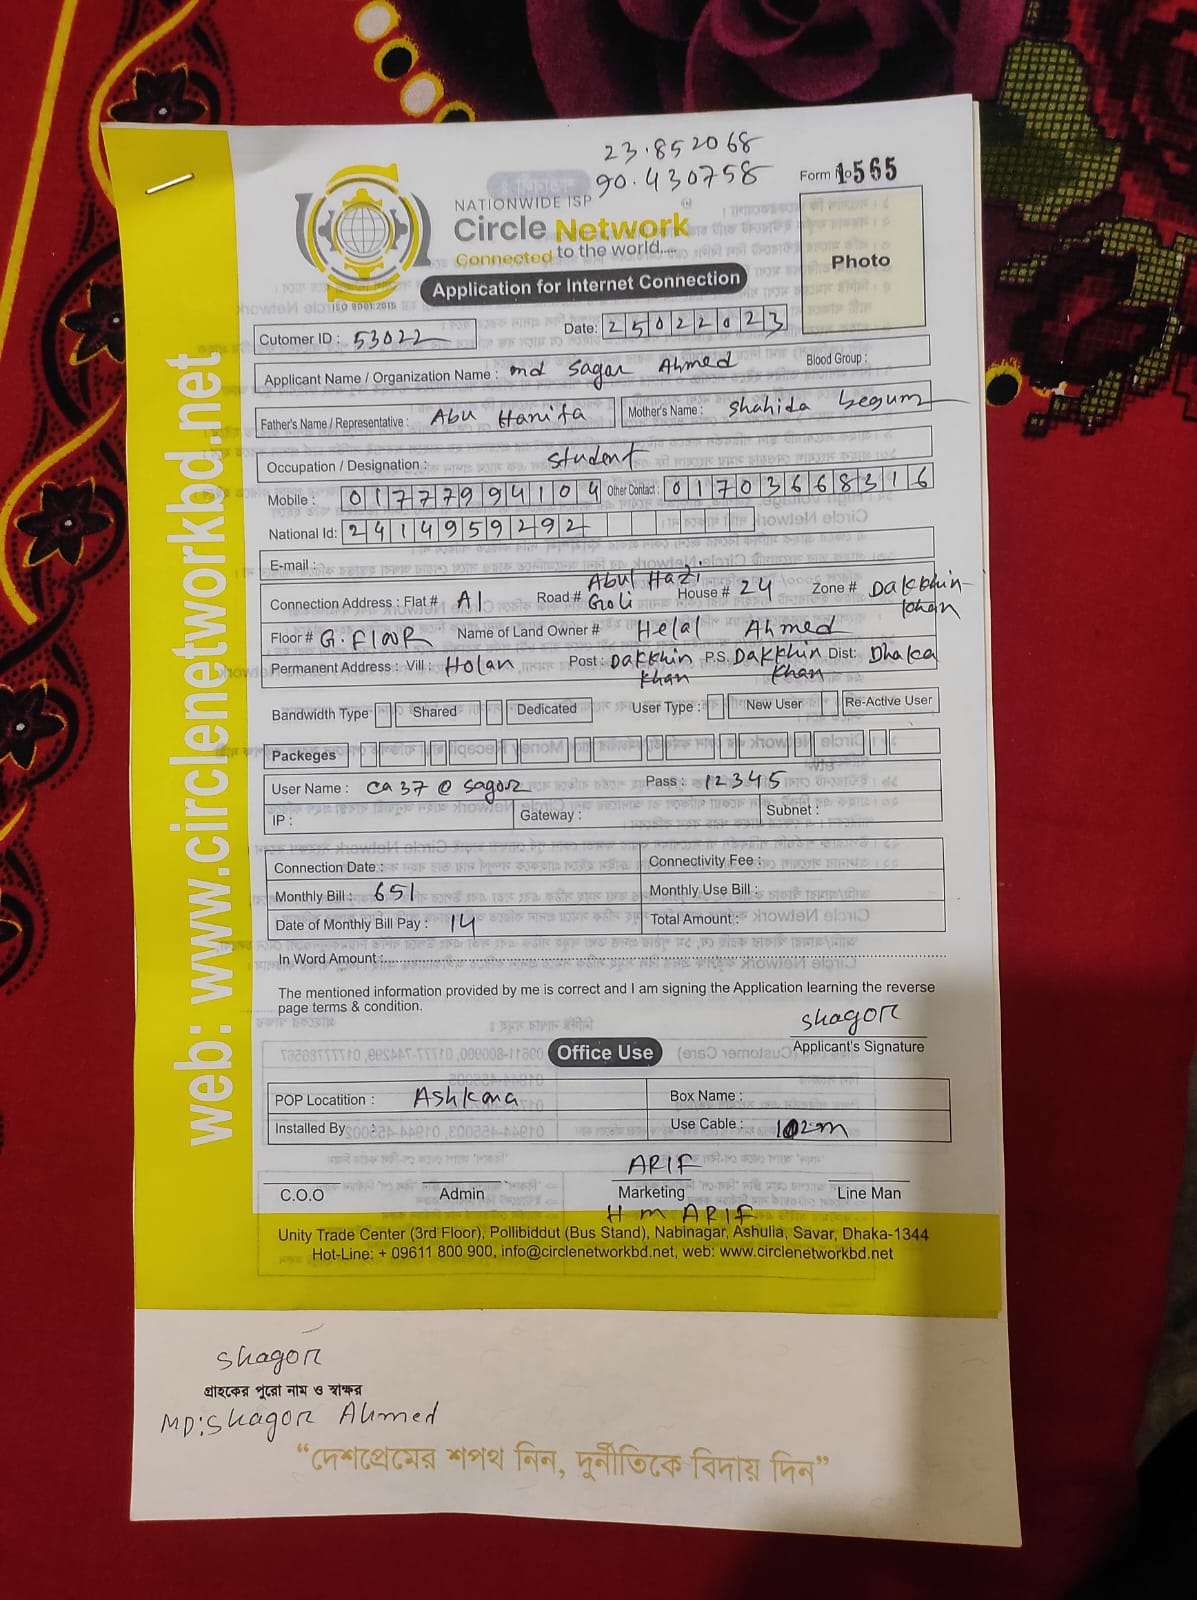 23.852068
90.430758
Form No 1565
NATIONWIDE ISP
Circle Network
Connected to the world....
ISO 9001:2015
Photo
Application for Internet Connection
Cutomer ID : 53022
Date: 25022023
Applicant Name / Organization Name : md Sagar Ahmed Blood Group :
Father's Name / Representative : Abu Hanifa Mother's Name : Shahida begum
Occupation / Designation : Student
Mobile : 01777994104 Other Contact : 01703668316
National Id: 2414959292
E-mail :
Connection Address : Flat # A1 Road # Abul Hazi Goli House # 24 Zone # Dakkhin khan
Floor # G. Floor Name of Land Owner # Helal Ahmed
Permanent Address : Vill : Holan Post : Dakkhin khan P.S. Dakkhin khan Dist: Dhaka
Bandwidth Type Shared Dedicated User Type : New User Re-Active User
Packeges
User Name : ca37@sagor Pass : 12345
IP : Gateway : Subnet :
Connection Date : Connectivity Fee :
Monthly Bill : 651 Monthly Use Bill :
Date of Monthly Bill Pay : 14 Total Amount :
In Word Amount :
The mentioned information provided by me is correct and I am signing the Application learning the reverse
page terms & condition.
Shagor
Applicant's Signature
Office Use
POP Locatition : Ashkona Box Name :
Installed By : Use Cable : 102m
ARIF
C.O.O Admin Marketing Line Man
H M ARIF
Unity Trade Center (3rd Floor), Pollibiddut (Bus Stand), Nabinagar, Ashulia, Savar, Dhaka-1344
Hot-Line: + 09611 800 900, info@circlenetworkbd.net, web: www.circlenetworkbd.net
web: www.circlenetworkbd.net
Shagor
গ্রাহকের পুরো নাম ও স্বাক্ষর
MD: Shagor Ahmed
“দেশপ্রেমের শপথ নিন, দুর্নীতিকে বিদায় দিন”